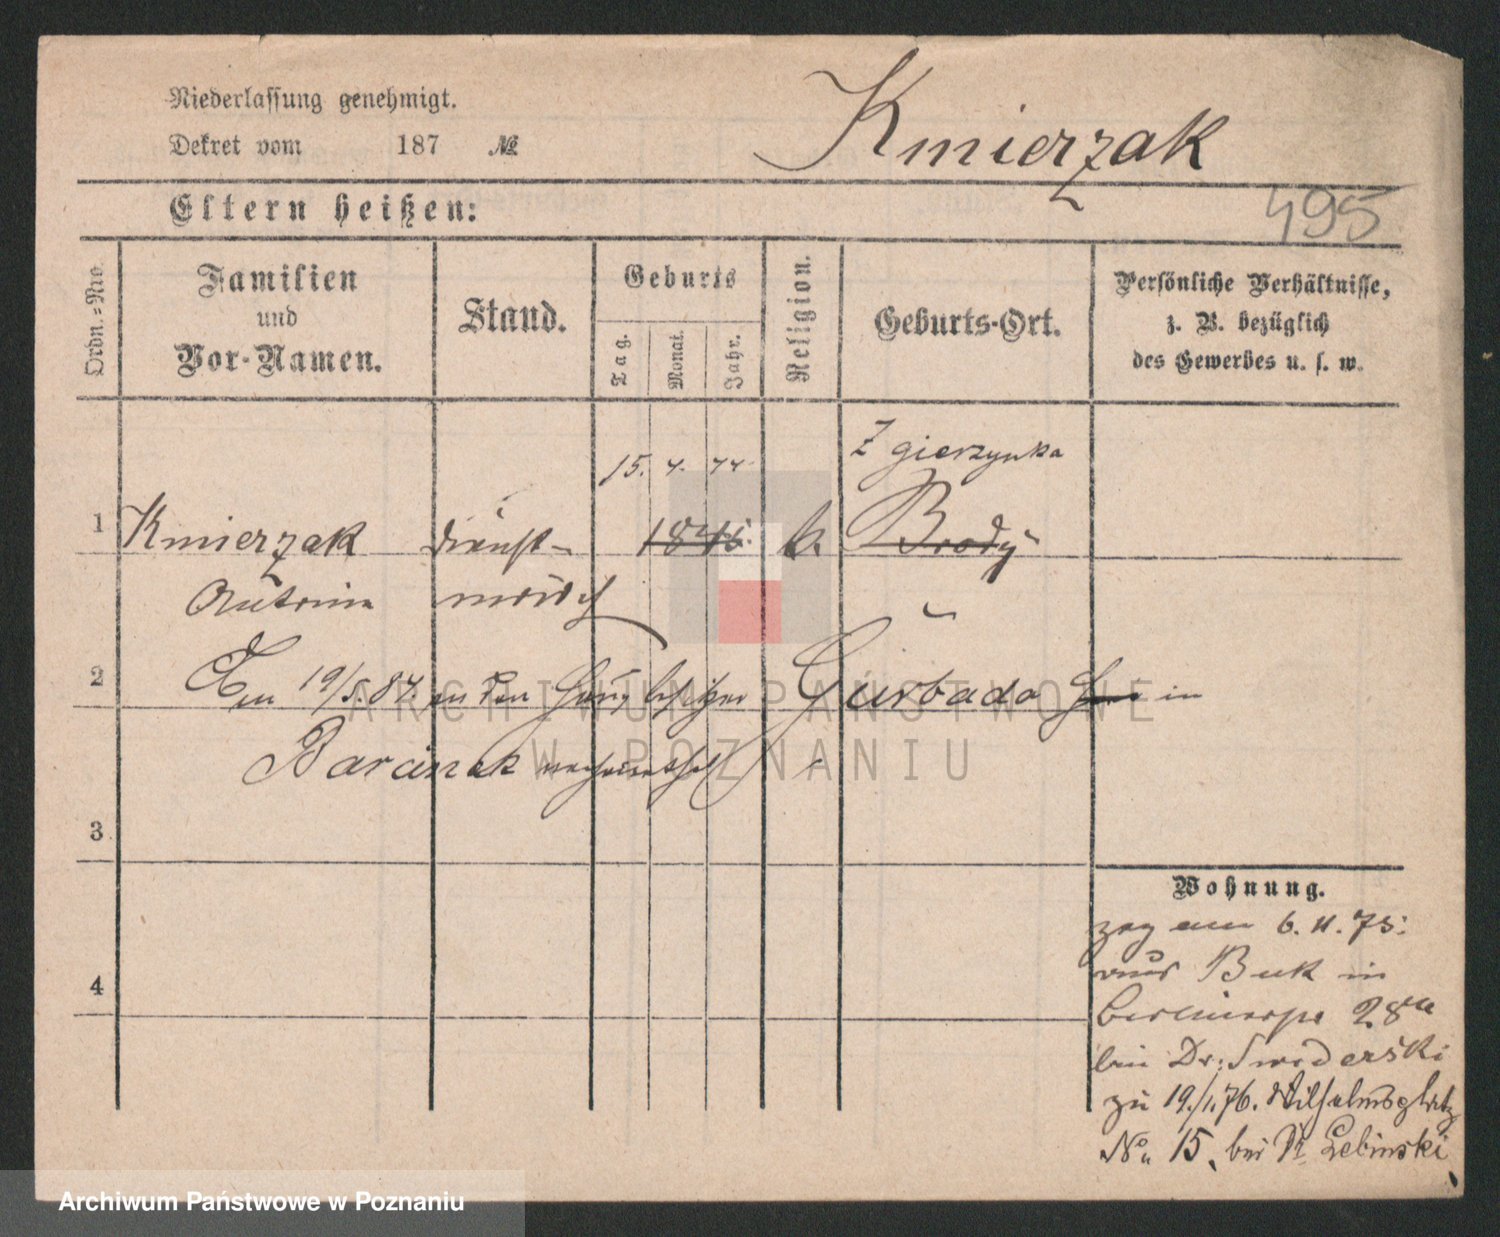 Niederlassung genehmigt.
Dekret vom 187 №
Kmierzak
495
Eltern heißen:
Ordn.=Nro.
Familien
und
Vor-Namen.
Stand.
Geburts
Tag.
Monat.
Jahr.
Religion.
Geburts-Ort.
Persönliche Verhältnisse,
z. B. bezüglich
des Gewerbes u. s. w.
15. 4. 44
Zgierzynka
1 Kmierzak Dienst- 1845 k. Brody
magd
2 19/5.84 an den Hausbesitzer in
Baranek verheirathet
3
4
Wohnung.
zog am 6. 11. 75.
aus Buk in
Berlinerstr 28
bei Dr. Swiderski
zu 19./1.76. Wilhelmsplatz
No. 15, bei Dr Lebinski
ARCHIWUM PAŃSTWOWE
W POZNANIU
Archiwum Państwowe w Poznaniu